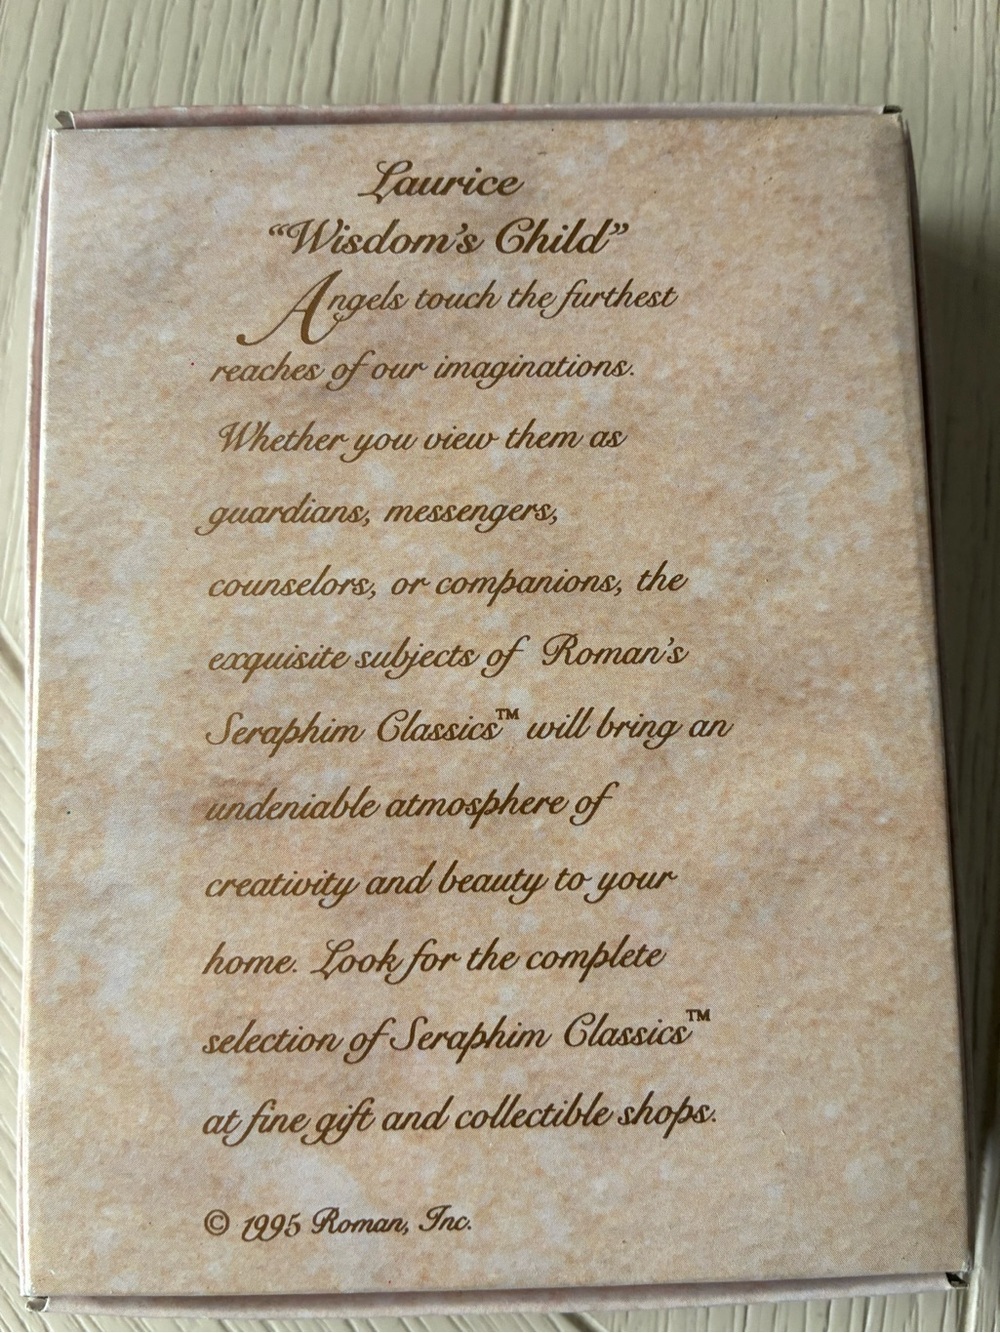 Laurice
“Wisdom’s Child”
Angels touch the furthest
reaches of our imaginations.
Whether you view them as
guardians, messengers,
counselors, or companions, the
exquisite subjects of Roman’s
Seraphim Classics™ will bring an
undeniable atmosphere of
creativity and beauty to your
home. Look for the complete
selection of Seraphim Classics™
at fine gift and collectible shops.
© 1995 Roman, Inc.